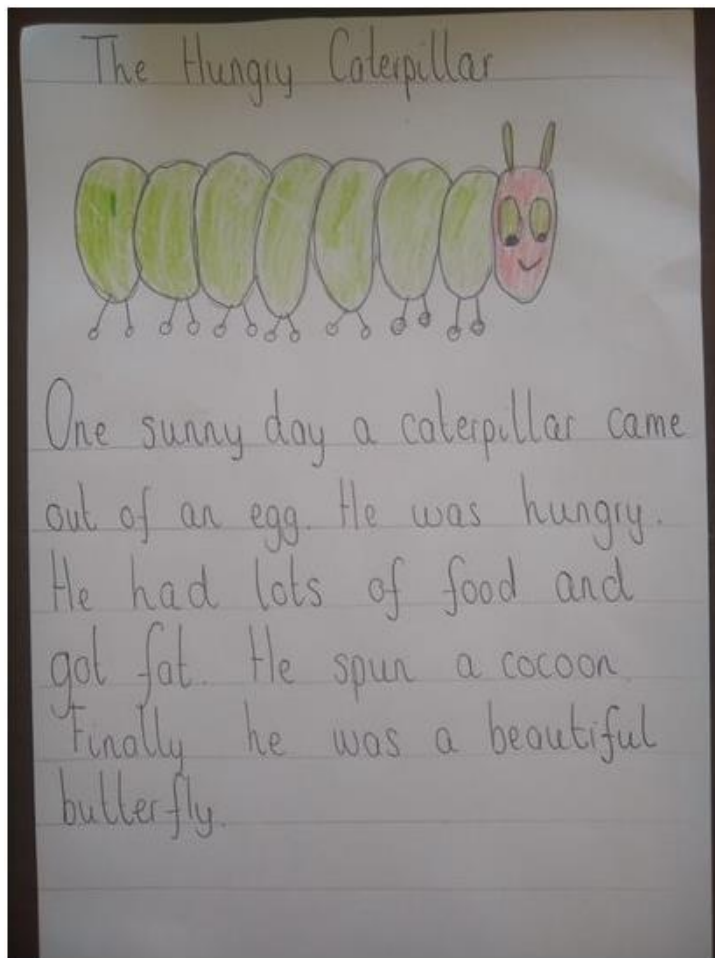 The Hungry Caterpillar
One sunny day a caterpillar came
out of an egg. He was hungry.
He had lots of food and
got fat. He spun a cocoon.
Finally he was a beautiful
butterfly.